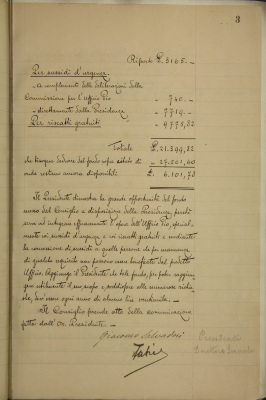 3
Riporto £. 3165.—
Per sussidi d'urgenza:
— a complemento delle deliberazioni della
Commissione per l'Ufficio Pio — " 740.—
— direttamente dalla Presidenza " 7719.—
Per riscatti gratuiti " 9.775,22
Totale £. 21.399,22
che dunque dedotte dal fondo a disposizione di — 27.501,00
onde restano ancora disponibili £. 6.101,78
Il Presidente dimostra la grande opportunità del fondo
messo dal Consiglio a disposizione della Presidenza, perchè
esso ad integrare efficacemente l'opera dell'Ufficio Pio, special
mente coi sussidi d'urgenza e coi riscatti gratuiti e mediante
la concessione di sussidi a quelle persone che per mancanza
di qualche requisito non possono venir beneficate dal predetto
Ufficio. Aggiunge il Presidente che tale fondo, per poter raggiun
gere utilmente il suo scopo e soddisfare alle numerose richie
ste, deve essere ogni anno di almeno lire ventimila. —
Il Consiglio prende atto della comunicazione
fatta dall'On. Presidente. —
Giacomo Salvadori